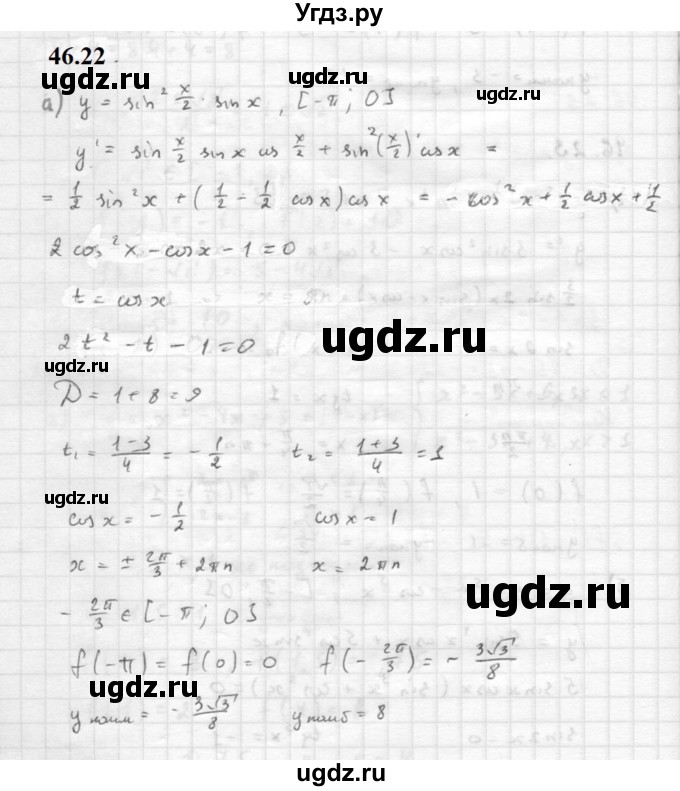 Угдз.ру
46.22
ugdz.ru ugdz.ru ugdz.ru
а) y = sin² x/2 · sin x , [-π; 0]
y' = sin x/2 sin x cos x/2 + sin²(x/2) cos x =
= 1/2 sin² x + (1/2 - 1/2 cos x) cos x = - cos² x + 1/2 cos x + 1/2
2 cos² x - cos x - 1 = 0
t = cos x
ugdz.ru
2t² - t - 1 = 0
D = 1 + 8 = 9
t₁ = (1-3)/4 = - 1/2 t₂ = (1+3)/4 = 1
ugdz.ru
cos x = - 1/2 cos x = 1
x = ± 2π/3 + 2πn x = 2πn
ugdz.ru
- 2π/3 ∈ [-π; 0]
f(-π) = f(0) = 0 f(- 2π/3) = - 3√3/8
ugdz.ru
y наим = - 3√3/8 y наиб = 8
ugdz.ru